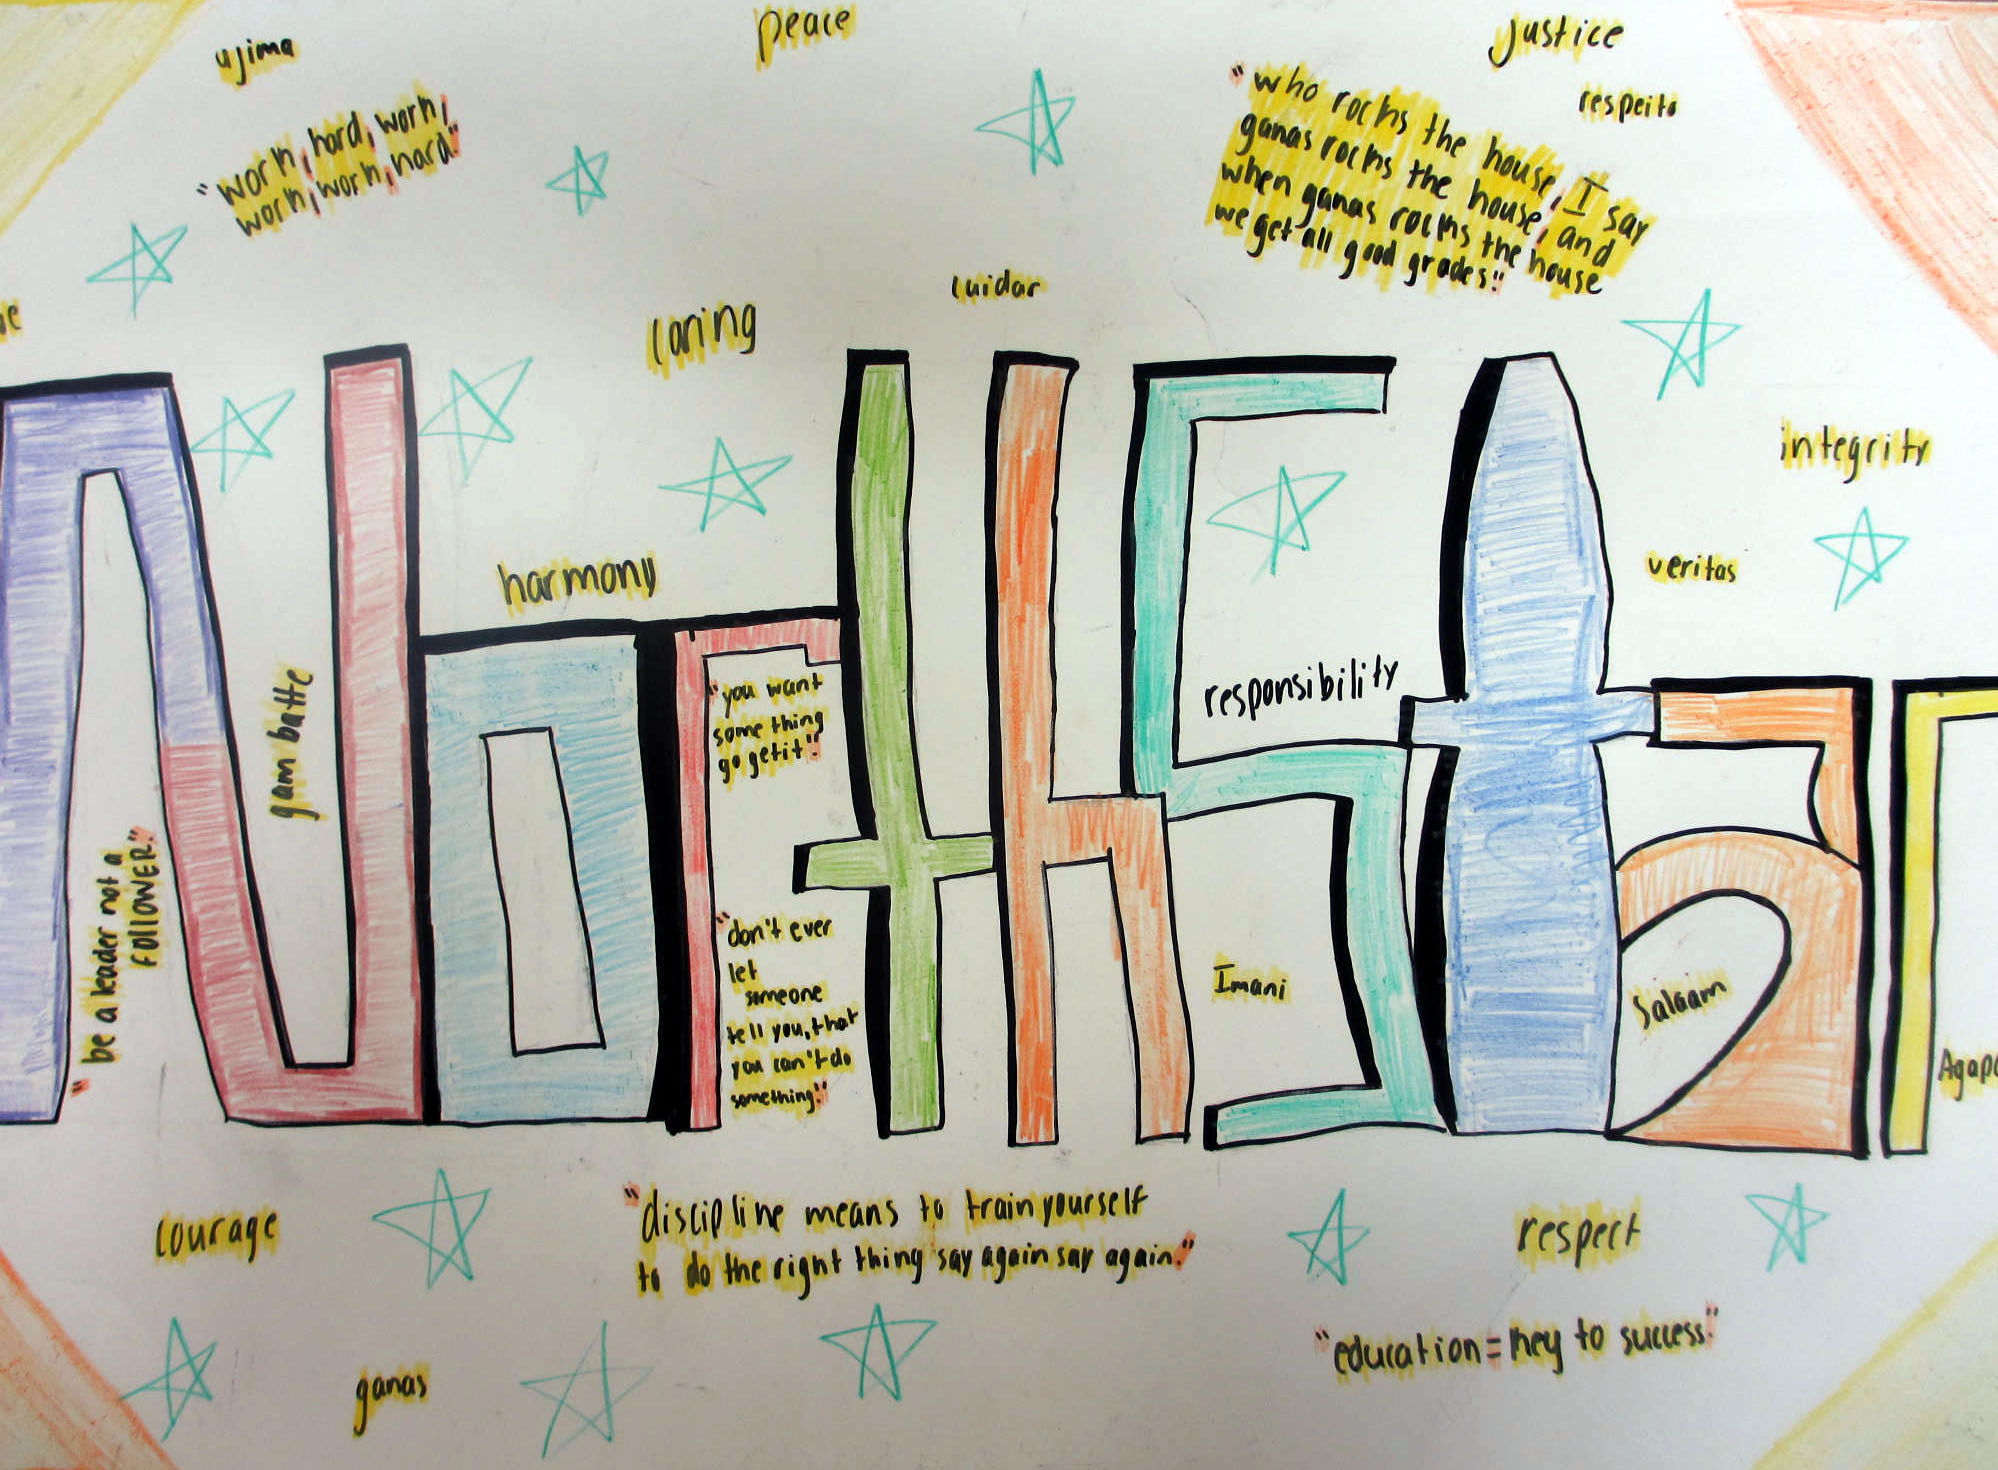 ujima
peace
justice
respeito
"work, hard, work,
work, work, hard."
"who rocks the house, I say
ganas rocks the house, and
when ganas rocks the house
we get all good grades."
cuidar
caring
integrity
veritas
harmony
NorthStar
gambatte
"be a leader not a
FOLLOWER."
"you want
something
go get it."
responsibility
"don't ever
let
someone
tell you, that
you can't do
something."
Imani
Salaam
courage
"discipline means to train yourself
to do the right thing say again say again."
respect
"education = key to success."
ganas